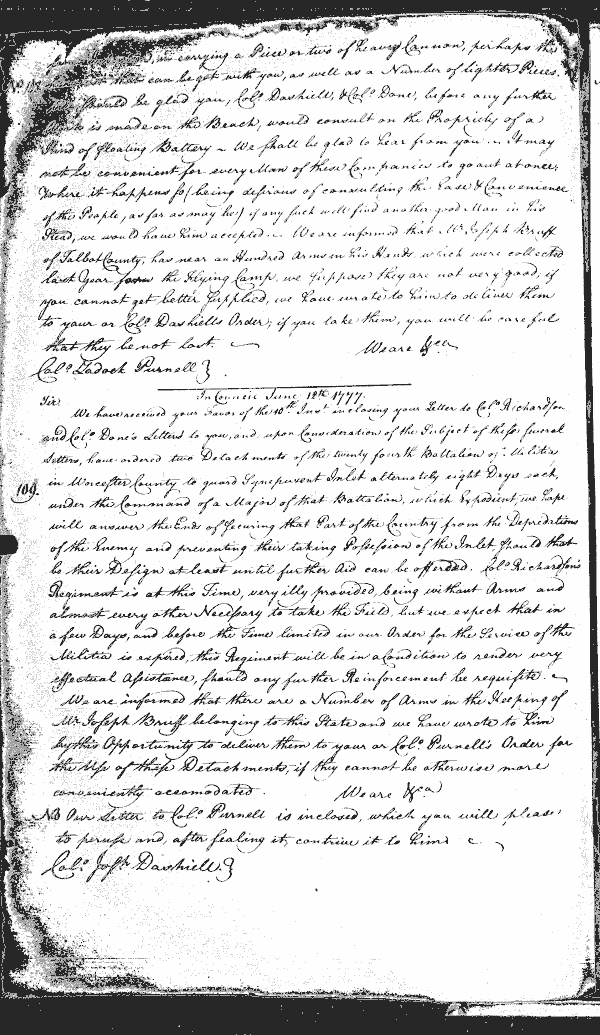 in carrying a Piece or two of heavy Cannon, perhaps the
that can be got with you, as well as a Number of lighter Pieces.
should be glad you, Colº Dashiell, & Colº Done, before any further
is made on the Beach, would consult on the Propriety of a
Kind of floating Battery ~ We shall be glad to hear from you ~ It may
not be convenient for every Man of these Companies to go out at once,
Where it happens so (being desirous of consulting the Ease & Convenience
of the People, as far as may be) if any such will find another good Man in his
Stead, we would have him accepted ~ We are informed that Mr Joseph Bruff
of Talbot County, has near an Hundred Arms in his Hands which were collected
last Year from the Flying Camp, we suppose they are not very good, if
you cannot get better supplied, we have wrote to him to deliver them
to your or Colº Dashiells Order, if you take them, you will be careful
that they be not lost. ~ We are &ca
Colº Zadock Purnell }
In Council June 12th 1777.
Sir
We have received your Favor of the 10th Inst inclosing your Letter to Colº Richardson
and Colº Done's Letters to you, and upon Consideration of the Subject of these several
Letters, have ordered two Detachments of the twenty fourth Battalion of Militia
in Worcester County to guard Synepuxent Inlet alternately eight Days each,
109.
under the Command of a Major of that Battalion, which Expedient, we hope
will answer the Ends of securing that Part of the Country from the Depredations
of the Enemy and preventing their taking Possession of the Inlet should that
be their Design at least until further Aid can be afforded. Colº Richardson's
Regiment is at this Time, very illy provided, being without Arms and
almost every other Necessary to take the Field, but we expect that in
a few Days, and before the Time limited in our Order for the Service of the
Militia is expired, this Regiment will be in a Condition to render very
effectual Assistance, should any further Reinforcement be requisite. ~
We are informed that there are a Number of Arms in the Keeping of
Mr Joseph Bruff belonging to this State and we have wrote to him
by this Opportunity to deliver them to your or Colº Purnell's Order for
the Use of those Detachments, if they cannot be otherwise more
conveniently accomodated. We are &ca
NB Our Letter to Colº Purnell is inclosed, which you will please
to peruse and, after sealing it, contrive it to him
Colº Josh Dashiell }